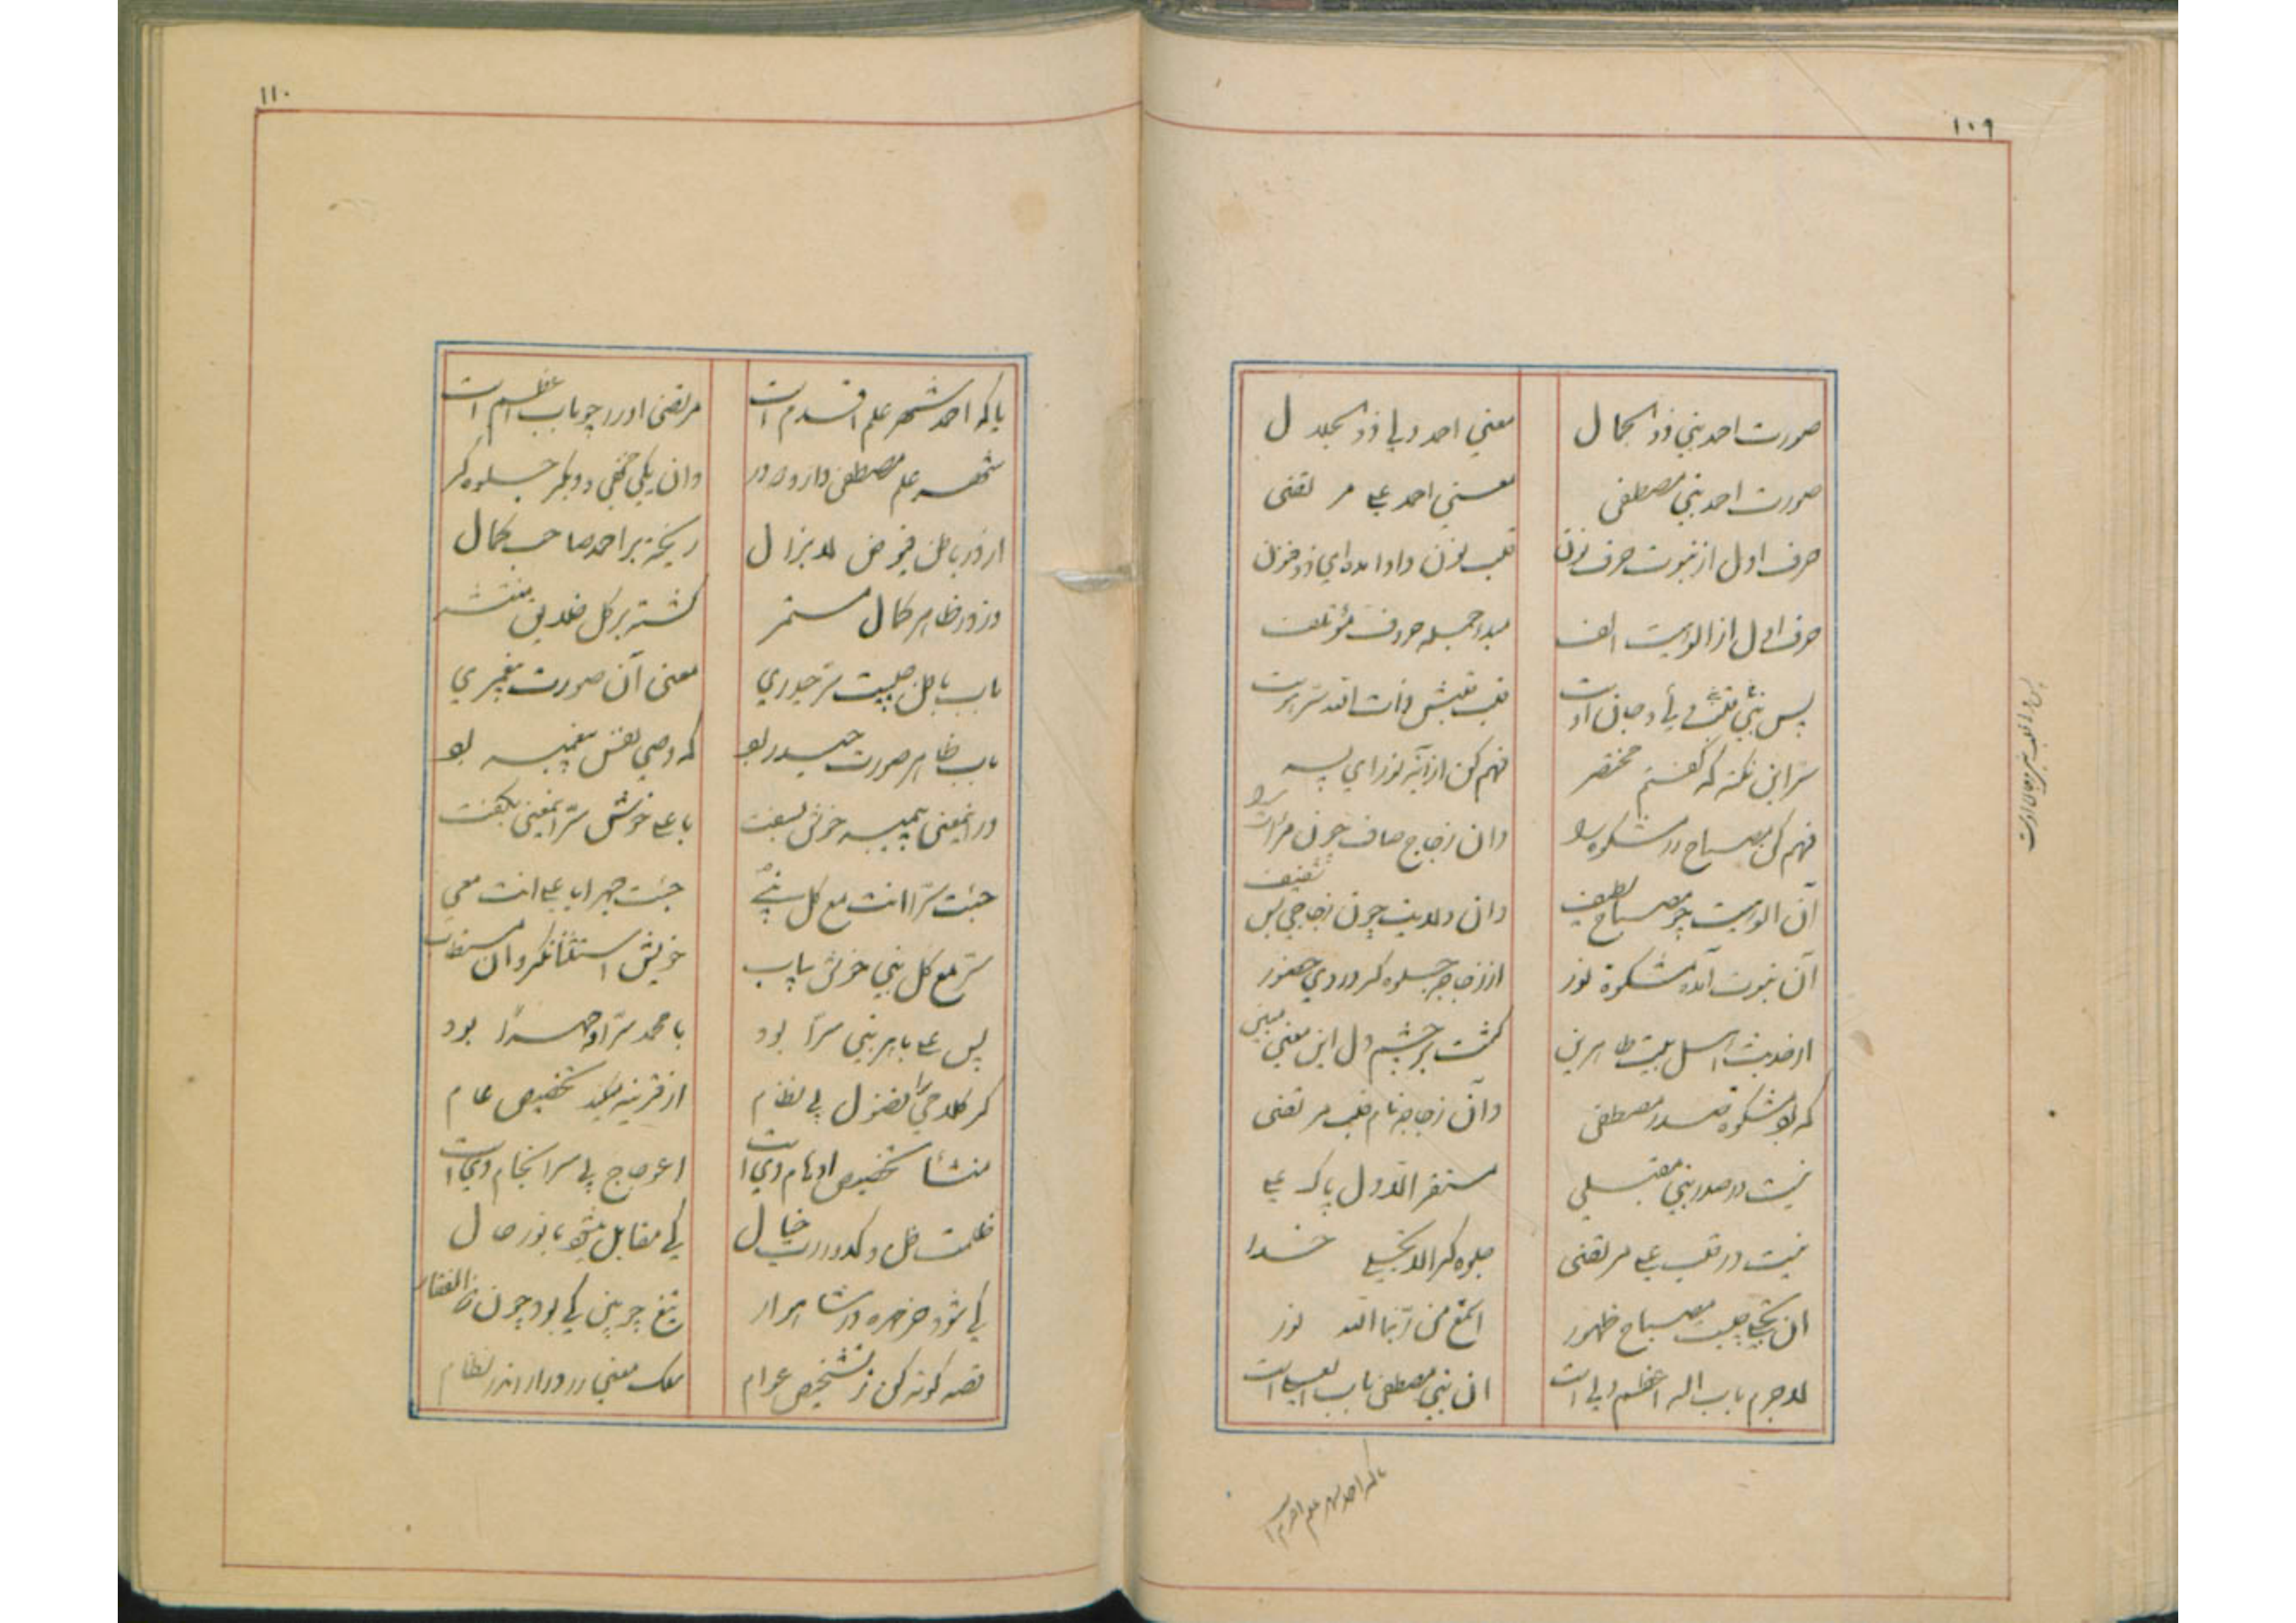 ۱۰۹
صورت احمد نبی ذو الجمال
معنی احمد ولی ذو الجلال
صورت احمد نبی مصطفی
معنی احمد علی مرتضی
حرف اول از نبوت حرف نون
قلب نون واو آمد ای ذو فنون
حرف اول از الوهیت الف
مبدا جمله حروف مؤتلف
پس نبی قلبش ولی و جان اوست
قلب قلبش ذات الله سر هوست
سر این نکته که گفتم مختصر
فهم کن از آیه نور ای پسر
فهم کن مصباح در مشکوة هو
وان زجاج صاف چون مرآت هو
آن الوهیت چو مصباح لطیف
وان ولایت چون زجاجی بس شفیف
آن نبوت آمده مشکوة نور
از زجاجه جلوه گر در وی حضور
از حدیث اهل بیت طاهرین
گشت بر چشم دل این معنی مبین
که بود مشکوة صدر مصطفی
وان زجاجه نام قلب مرتضی
نیست در صدر نبی مقتبلی
مستقر الاول پاک علی
نیست در قلب علی مرتضی
جلوه گر الا تجلی خدا
ان تجلی چیست مصباح ظهور
الله نور
لاجرم باب اله اعظم ولی است
ان نبی مصطفی باب العلی است
یا که احمد شهر علم اقدم است
۱۱۰
یا که احمد شهر علم اقدم است
مرتضی او را چو باب اعظم است
شهر علم مصطفی دارد دو در
وان یکی خفی و دیگر جلوه گر
از در باطن فیوض لایزال
ریخته بر احمد صاحب کمال
وز در ظاهر کمال مستمر
گشته بر کل خلایق منتشر
باب باطن چیست سر حیدری
معنی آن صورت پیغمبری
باب ظاهر صورت حیدر بود
که وصی نفس پیغمبر بود
در این معنی پیمبر خوش بسفت
با علی خویش سر این معنی بگفت
جئت سرا انت مع کل نبی
جئت جهرا یا علی انت معی
سر مع کل نبی خوش یاب
خویش استثنا نکرد آن مستطاب
پس علی با هر نبی سرا بود
با محمد سرا و جهرا بود
گر کلامی بوالفضول بی نظام
از قرینه میکند تخصیص عام
منشأ تخصیص اوهام وی است
اعوجاج بی سرانجام وی است
ظلمت ظل و کدورت خیال
کی مقابل میشود با نور حال
کی شود خر مهره در شاهوار
تیغ چوبین کی بود چون ذوالفقار
قصه کوته کن ز تشخیص عوام
سلک معنی را در آر اندر نظام